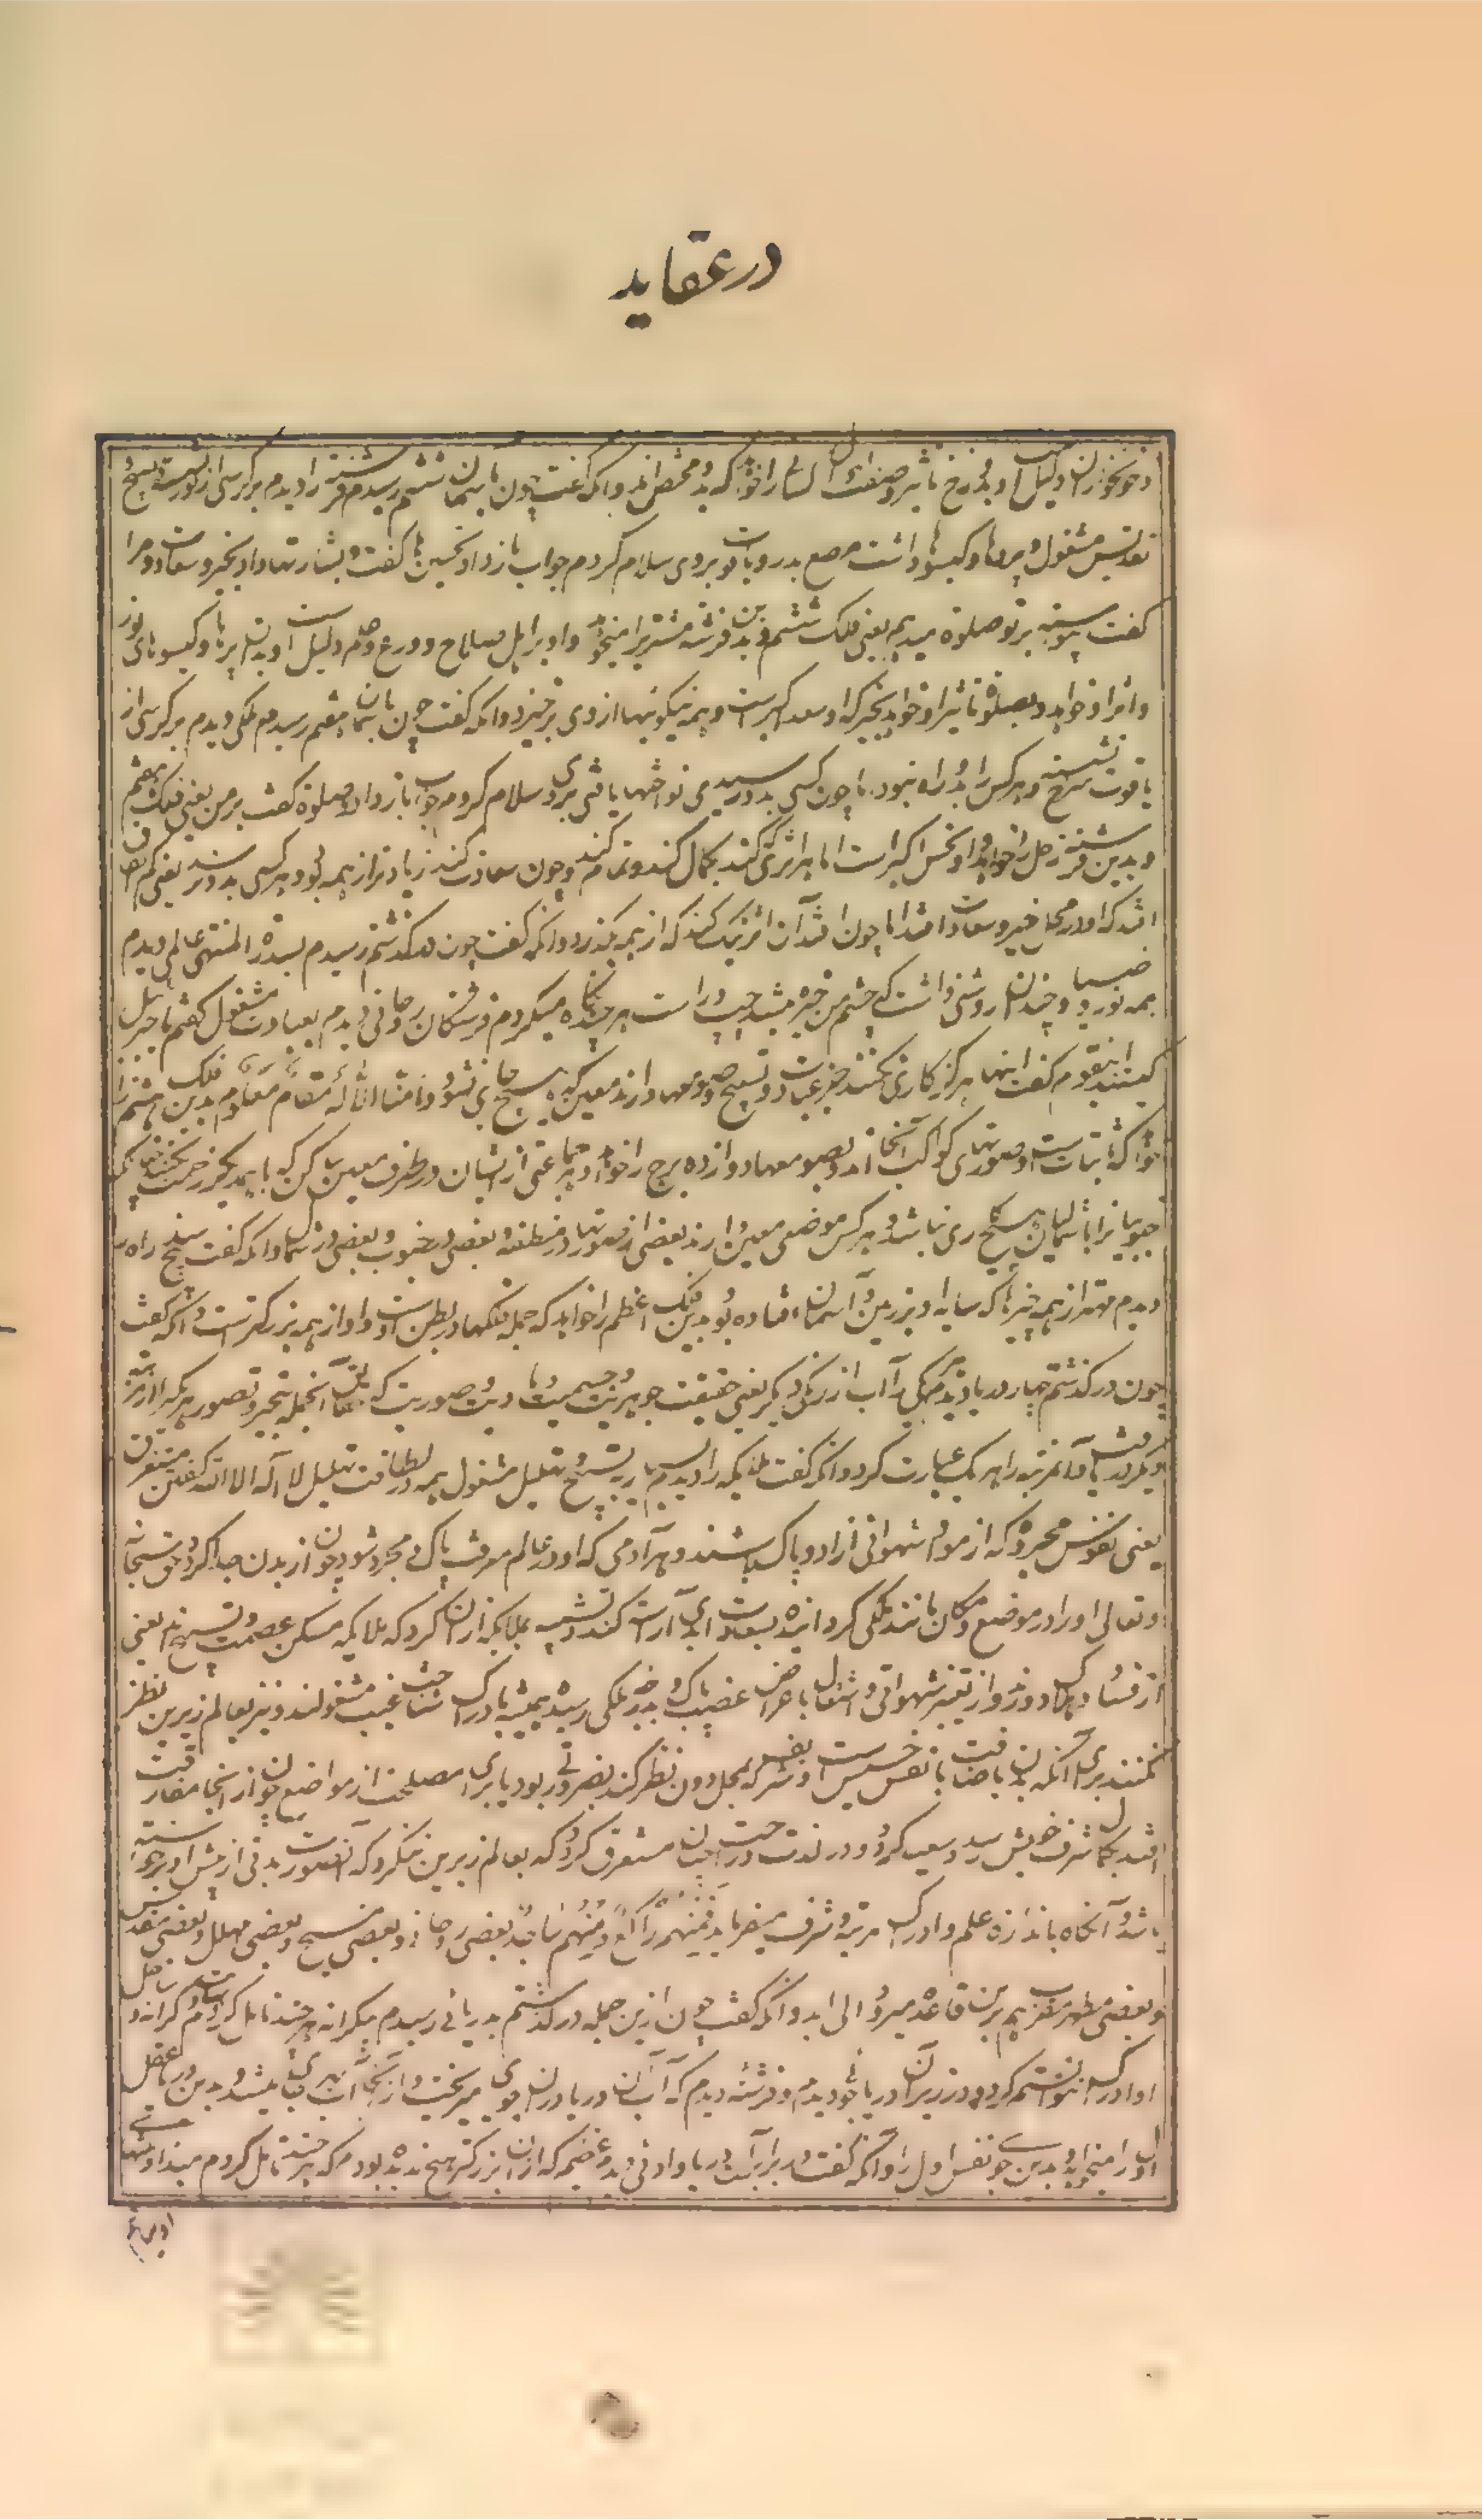 در عقاید
و خونخواران و دلیل او و بدوزخ تاثیر و صفت و احوال کسانی را خواهد که بدو مختص اند و آنکه گفت چون بآسمان ششم رسیدم فرشته را دیدم بر کرسی از نور نشسته و بتسبیح
تقدیس مشغول و پرها و گیسوها داشت مرصع بدر و یاقوت بروی سلام کردم جواب باز داد و تحسین ها گفت و بشارتها داد بخیر و سعادت و مرا
گفت پیوسته بر تو صلوة میدهم یعنی فلک ششم و بدین فرشته مشتری را میخواهد و او بر اهل صلاح و ورع و علم دلیل است و بدان پرها و گیسوهای نور
و اثر او خواهد و بصلوة تاثیر او خواهد بخیر که او سعد اکبر است و همه نیکوئیها از وی برخیزد و آنکه گفت چون بآسمان هفتم رسیدم ملکی دیدم بر کرسی از
یاقوت سرخ نشسته و هر کس را بدو راه نبود اما چون کسی بدو رسیدی نواختها یافتی بروی سلام کردم جواب باز داد و صلوة گفت بر من یعنی فلک هفتم
و بدین فرشته زحل را خواهد و او نحس اکبر است اما هر اثری که کند بکمال کند و تمام کند و چون سعادت کند زیادتر از همه بود و هر کسی بدو نرسد یعنی کم اتفاق
افتد که او در محل خیر و سعادت افتد اما چون افتد آن اثر نیک کند که از همه بگذرد و آنکه گفت چون درگذشتم رسیدم بسدرة المنتهی عالمی دیدم
همه نور و ضیا و چندان روشنی داشت که چشم من خیره میشد چپ و راست هر چند نگاه میکردم فرشتگان روحانی دیدم بعبادت مشغول گفتم یا جبریل
کیستند اینقوم گفت اینها هرگز کاری نکنند جز عبادت و تسبیح و صومعها دارند معین که هیچ جای نشوند وما منا الا له مقام معلوم بدین فلک هشتم را
خواهد که ثابتات است و صورتهای کواکب آنجا اند و بصومعها دوازده برج را خواهد و هر جماعتی از ایشان در طرف معین ساکن که با یکدیگر زحمت نکنند چنانکه
جنوبیانرا با شمالیان هیچ کاری نباشد و هر کس موضعی معین دارند بعضی از صورتها در منطقه و بعضی در جنوب و بعضی در شمال و آنکه گفت سدره را
دیدم مهتر از همه چیزها که سایه او بر زمین و آسمان افتاده بود بدین فلک اعظم را خواهد که جمله فلکها در بطن اوست و او از همه بزرگترست و آنکه گفت
چون درگذشتم چهار دریا دیدم هر یکی را آب از رنگی دیگر یعنی حقیقت جوهریت و جسمیت و مادیت و صوریت که
دیگر یافت و آنمرتبه را بهر یک عبارت کرد و آنکه گفت ملائکه را دیدم بسیار بتسبیح و تهلیل مشغول همه در لطافت تهلیل لا اله الا الله گفتن مستغرق
یعنی نفوس مجرده که از مواد شهوانی آزاد و پاک باشند و هر آدمی که او در عالم معرفت پاک و مجرد شود چون از بدن جدا گردد حق سبحانه
و تعالی او را در موضع و مکان مانند ملکی گرداند و بسعادت ابدی آراسته کند و تشبیه بملائکه از آن کرد که ملائکه مسکن عصمت و تسبیح اند یعنی
از فساد و هلاک دور و از تغیر شهوانی و اشتغال باعراض غضبی پاک و بدرجه ملکی رسیده همیشه بادراک شناخت غیب مشغولند و نیز بعالم زیرین نظر
نکنند برای آنکه بدن باضافت با نفس خسیس است و شریف که بمحل دون نظر کند بضرورتی بود یا برای مصلحت از مواضع چون از آنجا مفارقت
افتد بکمال شرف خویش رسد و سعید گردد و در لذت و راحت چنان مستغرق گردد که بعالم زیرین ننگرد که آن صورت بدنی از پیش او برخاسته
باشد و آنگاه باندازه علم و ادراک مرتبه و شرف میفزاید فمنهم راکع ومنهم ساجد بعضی روحانی و بعضی مسبح و بعضی مهلل و بعضی مقدس
و بعضی مطهر و بعضی مقرب هم برین قاعده میرود الی ابد و آنکه گفت چون ازین جمله درگذشتم بدریائی رسیدم بیکرانه هر چند تامل کردم کرانه و ساحل
او ادراک نتوانستم کرد و در زیر آن دریا جوئی دیدم و فرشته دیدم که آب آن دریا در آن جوی میریخت و از آنجا آب بهر جای میشد بدین دریا عقل
اول را میخواهد و بدین جوی نفس اول را و آنکه گفت در برابر آن دریا وادئی دیدم عظیم که از آن بزرگتر هیچ ندیده بودم که هر چند تامل کردم مبدا و منتهای
او نیافتم